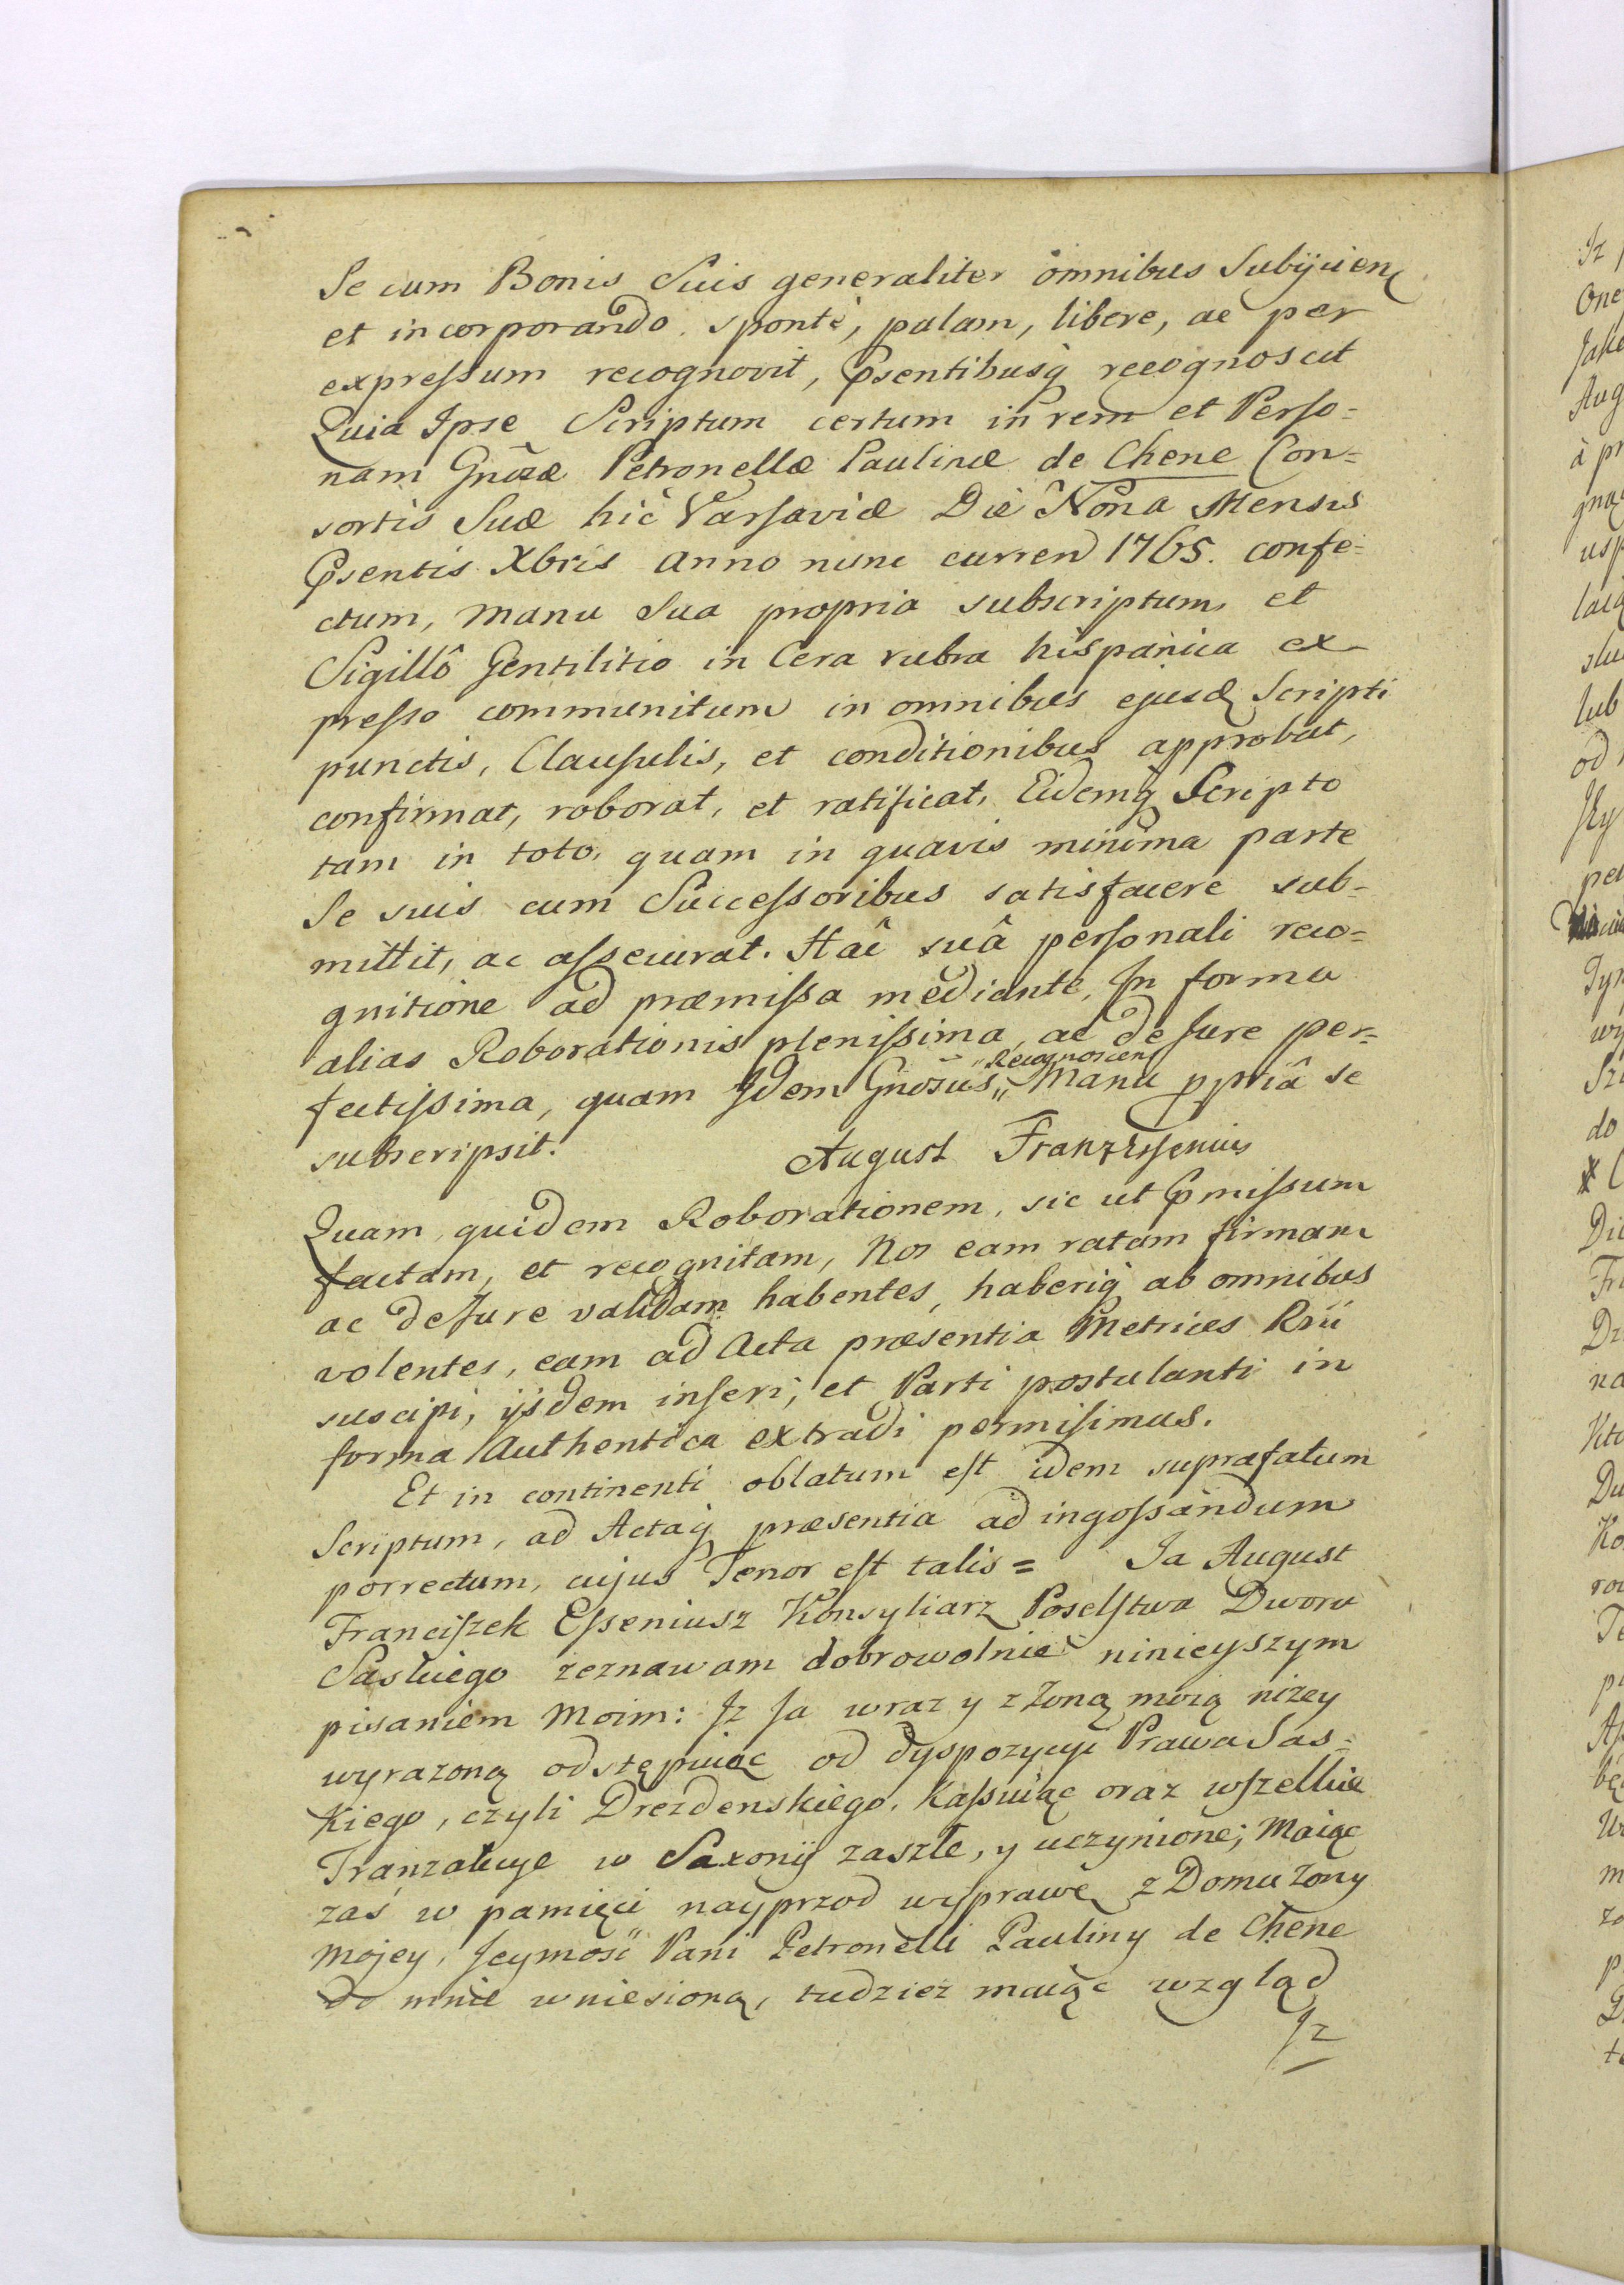 Se cum Bonis Suis generaliter omnibus Subijcien
et incorporando spontè, palam, libere, ac per
expressum recognovit, Psentibusq recognoscit
Quia Ipse Scriptum certum in rem et Perso=
nam Gnosæ Petronellæ Paulinæ de Chene Con=
sortis Suæ hic Varsaviæ Die Nona Mensis
Psentis Xbris anno nunc curren 1765. confe=
ctum, manu Sua propria subscriptum et
Sigillô Gentilitio in Cera rubra hispanica ex-
presso communitum in omnibus ejusd Scripti
punctis, Clausulis, et conditionibus approbat,
confirmat, roborat, et ratificat, Eidemq Scripto
tam in toto, quam in quavis minima parte
Se suis cum Successoribus satisfacere sub-
mittit, ac assecurat. Hac suâ personali reco=
gnitione ad præmissa mediante, In forma
alias Roborationis plenissima, ac de Jure per=
fectissima, quam Idem Gnosus „Recognoscen„ Manu ppriâ se
subscripsit. August Franz Essenius
Quam quidem Roborationem, sic ut Pmissum
factam, et recognitam, Nos eam ratam firmam
ac de Jure validam habentes, haberiq ab omnibus
volentes, eam ad Acta præsentia Metrices Rni
suscipi, ijsdem inseri, et Parti postulanti in
forma Authentica extradi permisimus.
Et in continenti oblatum est idem suprafatum
Scriptum, ad Actaq præsentia ad ingossandum
porrectum, cujus Tenor est talis = Ja August
Franciszek Esseniusz Konsyliarz Poselstwa Dworu
Saskiego zeznawam dobrowolnie ninieyszym
pisaniem Moim: Iz Ja wraz y z Zoną moią nizey
wyrazoną odstępuiąc od dyspozycyi Prawa Sas=
kiego, czyli Drezdenskiego, Kassuiąc oraz wszelkie
Tranzakcye w Saxonij zaszłe, y uczynione; Maiąc
zaś w pamięci nayprzod wyprawę z Domu Zony
Mojey, Jeymosci Pani Petronelli Pauliny de Chene
do mnie wniesioną, tudziez maiąc wzgląd
Iz